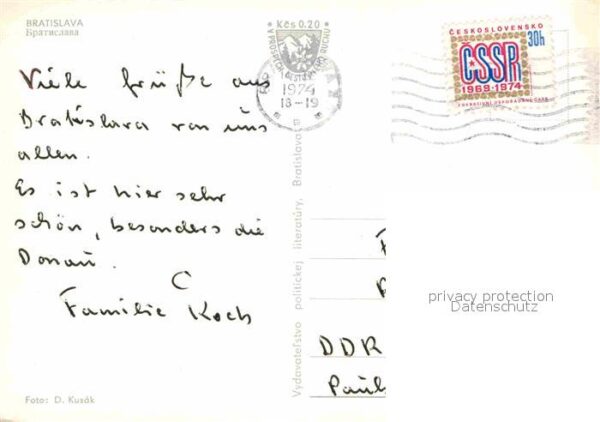 BRATISLAVA
Братислава
Viele Grüße aus
Bratislava von uns
allen.
Es ist hier sehr
schön, besonders die
Donau.
Familie Koch
Foto: D. Kusák
Vydavateľstvo politickej literatúry, Bratislava
Kčs 0.20
1974
18-19
ČESKOSLOVENSKO
30h
ČSSR
1969-1974
privacy protection
Datenschutz
DDR